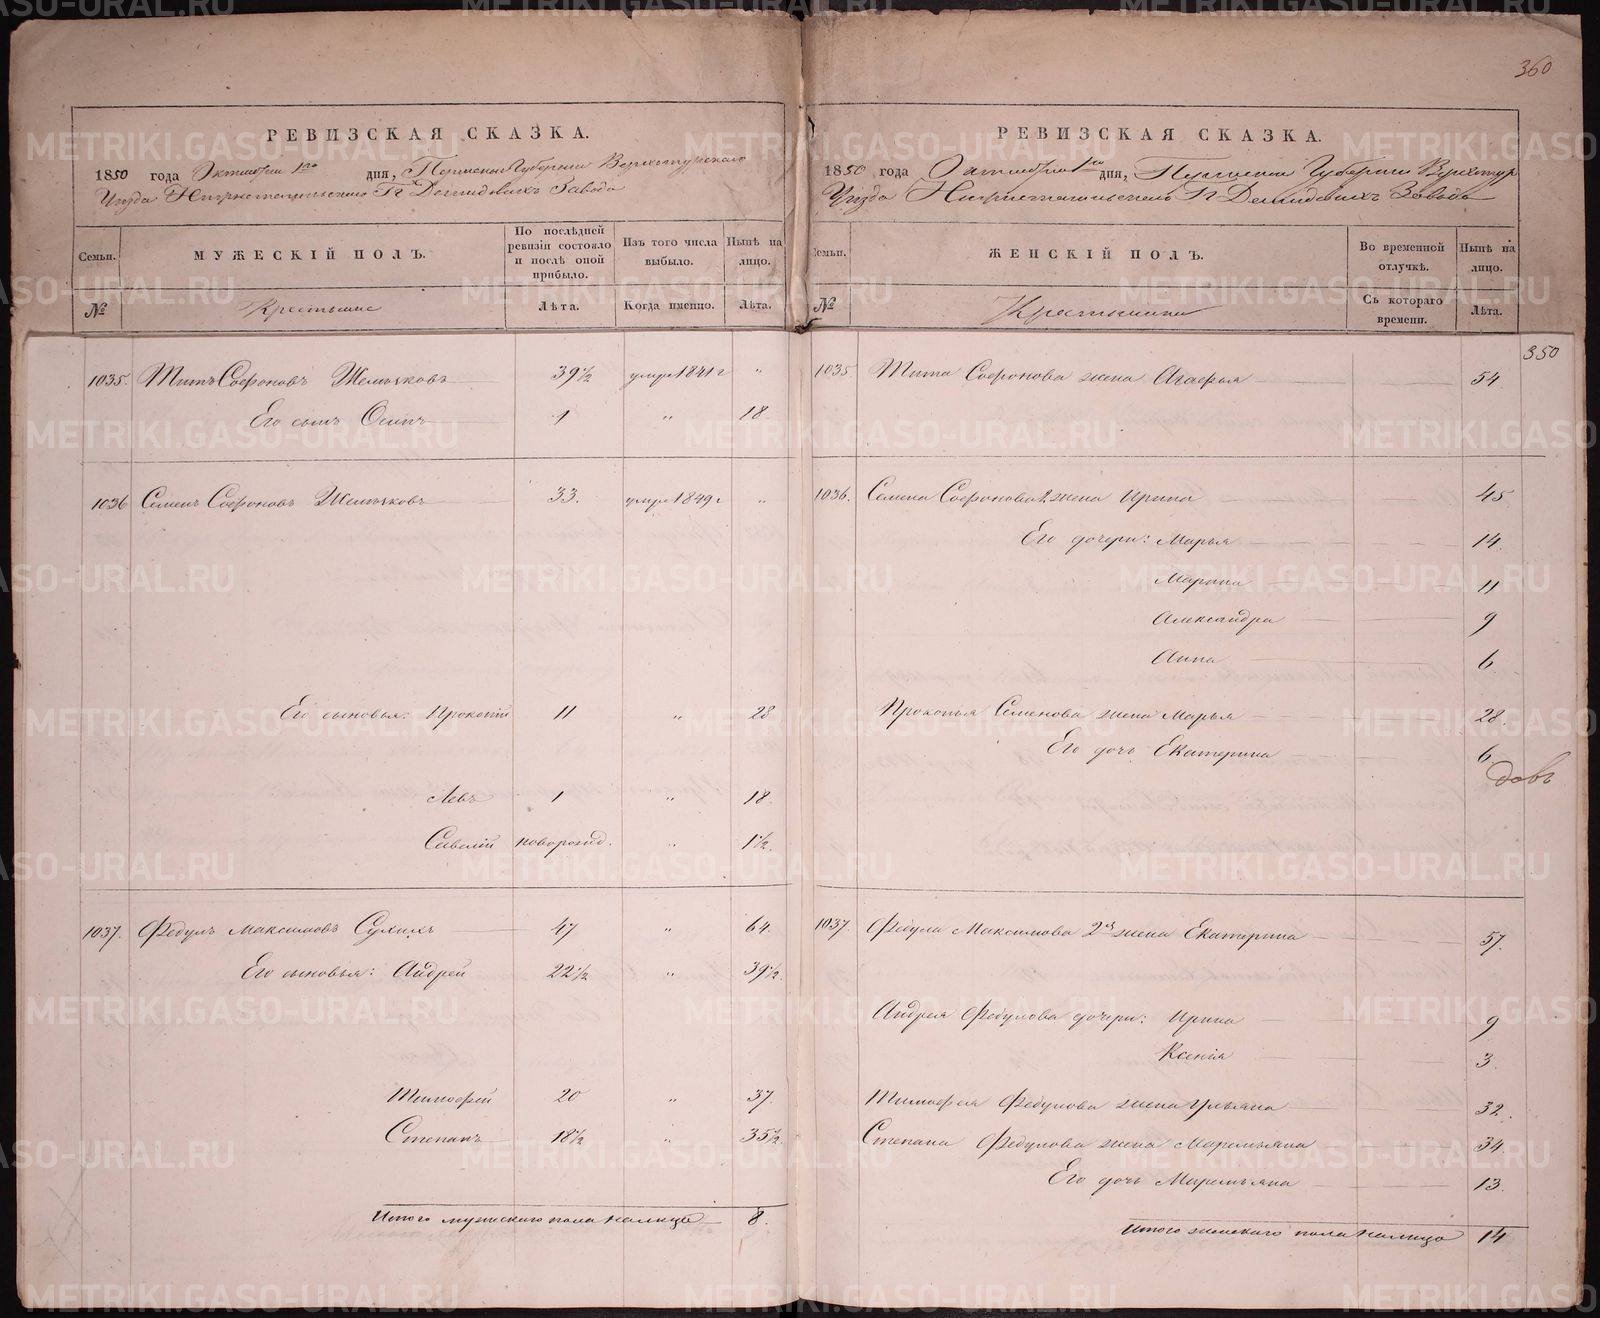 360
РЕВИЗСКАЯ СКАЗКА.
1850 года Октября 1го дня, Пермской Губернии Верхотурскаго
Уезда Нижнетагильскаго Гг Демидовыхъ Завода
Семьи. МУЖЕСКІЙ ПОЛЪ. По послѣдней ревизіи состояло и послѣ оной прибыло. Изъ того числа выбыло. Нынѣ на лицо.
№ Крестьяне Лѣта. Когда именно. Лѣта.
1035. Титъ Софроновъ Желтковъ 39½ умре 1841 г "
Его сынъ Осипъ 1 " 18
1036 Семенъ Софроновъ Желтковъ 33. умре 1849 г "
Его сыновья: Прокопій 11 " 28
Левъ 1 " 18.
Савелій новорожд. " 1½.
1037. Федулъ Максимовъ Сухихъ 47 " 64.
Его сыновья: Андрей 22½ " 39½.
Тимофей 20 " 37.
Степанъ 18½ " 35½
Итого мужскаго пола налицо 8.
РЕВИЗСКАЯ СКАЗКА.
1850 года Октября 1го дня, Пермской Губернии Верхотур
Уезда Нижнетагильскаго Гг Демидовыхъ Завода
Семьи. ЖЕНСКІЙ ПОЛЪ. Во временной отлучкѣ. Нынѣ на лицо.
№ Крестьянки Съ котораго времени. Лѣта.
350
1035 Тита Софронова жена Агафья 54
1036. Семена Софронова жена Ирина 45
Его дочери: Марья 14.
Марина 11
Александра 9
Анна 6
Прокопья Семенова жена Марья 28.
Его дочь Екатерина 6
довъ
1037. Федула Максимова 2я жена Екатерина 57.
Андрея Федулова дочери: Ирина 9
Ксенія 3.
Тимофея Федулова жена Ульяна 32.
Степана Федулова жена Маремьяна 34.
Его дочь Маремьяна 13.
Итого женскаго пола налицо 14
METRIKI.GASO-URAL.RU